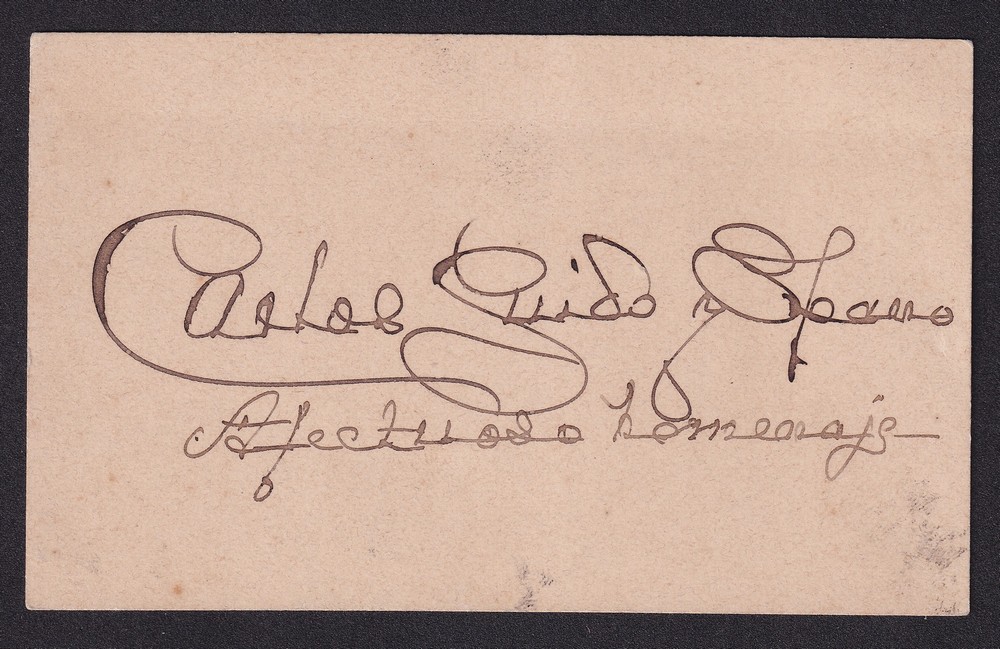 Carlos Guido y Spano
Afectuoso homenaje